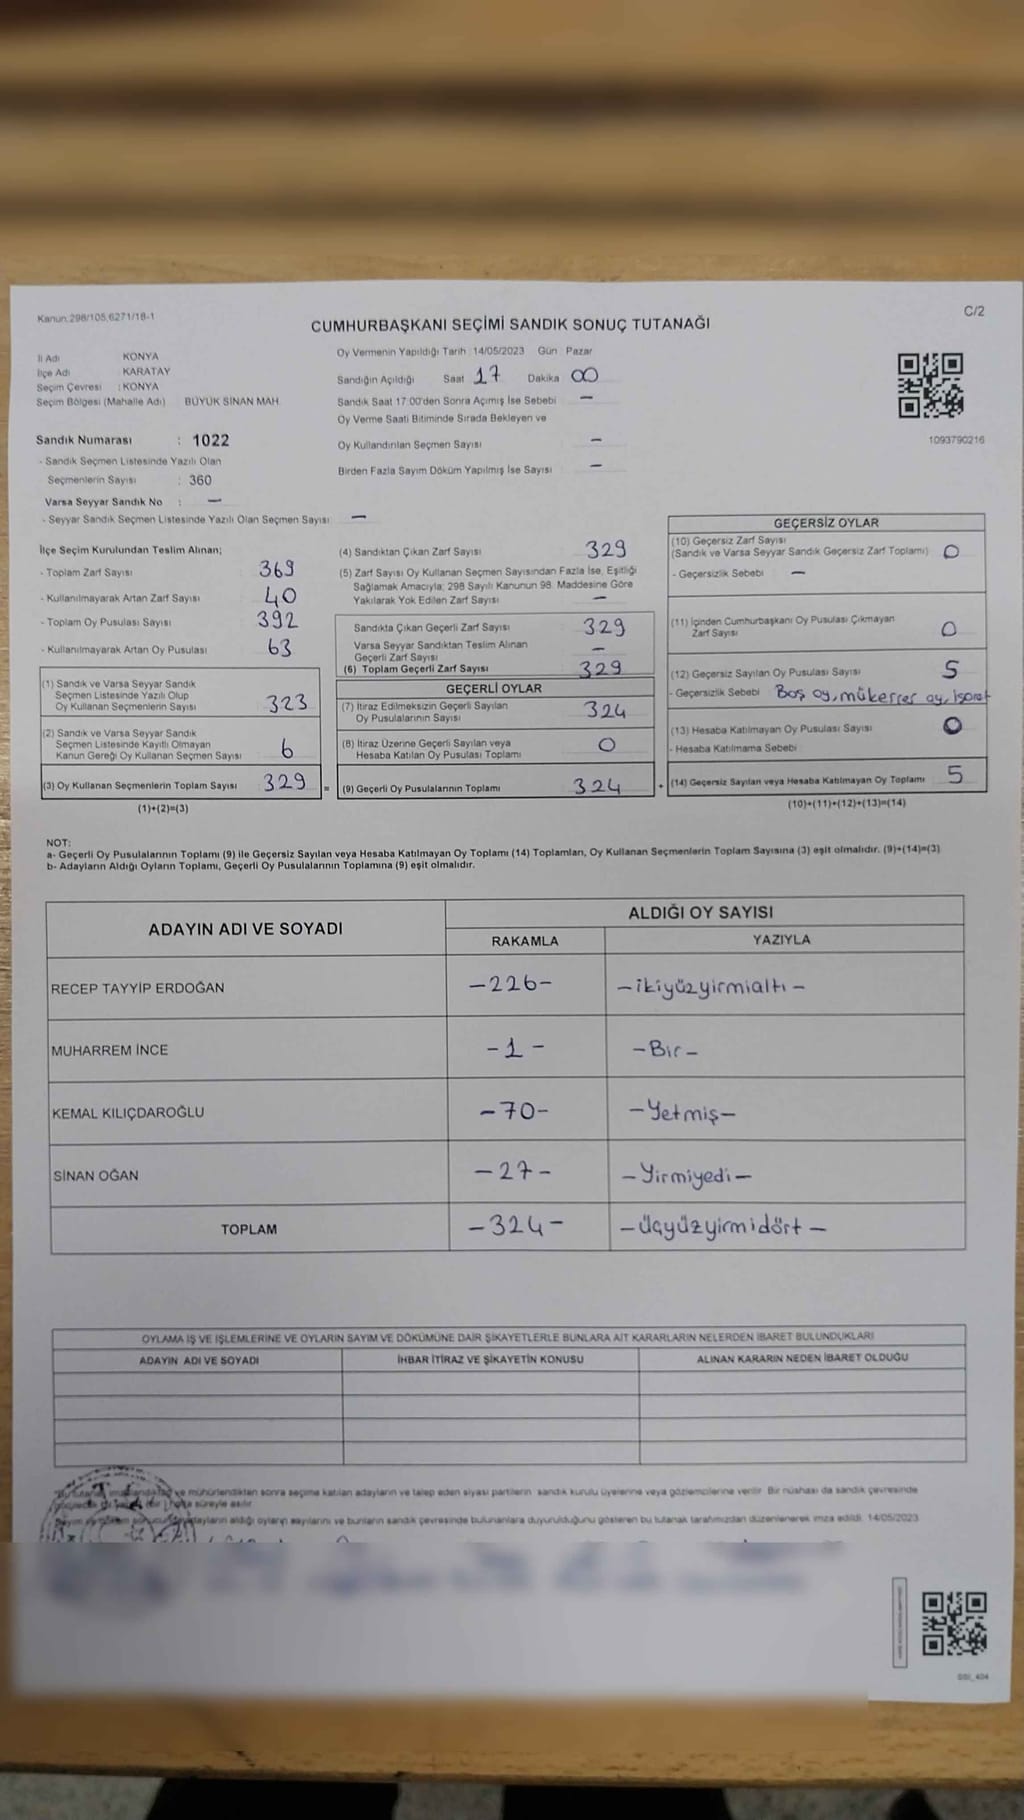 Kanun:298/105,6271/18-1
C/2
CUMHURBAŞKANI SEÇİMİ SANDIK SONUÇ TUTANAĞI
İl Adı KONYA
İlçe Adı KARATAY
Seçim Çevresi : KONYA
Seçim Bölgesi (Mahalle Adı) BÜYÜK SİNAN MAH.
Oy Vermenin Yapıldığı Tarih : 14/05/2023 Gün : Pazar
Sandığın Açıldığı Saat 17 Dakika 00
Sandık Saat 17:00'den Sonra Açımış İse Sebebi —
Oy Verme Saati Bitiminde Sırada Bekleyen ve
Oy Kullandırılan Seçmen Sayısı —
Birden Fazla Sayım Döküm Yapılmış İse Sayısı —
1093790216
Sandık Numarası : 1022
- Sandık Seçmen Listesinde Yazılı Olan
Seçmenlerin Sayısı : 360
Varsa Seyyar Sandık No : —
- Seyyar Sandık Seçmen Listesinde Yazılı Olan Seçmen Sayısı —
İlçe Seçim Kurulundan Teslim Alınan;
- Toplam Zarf Sayısı 369
- Kullanılmayarak Artan Zarf Sayısı 40
- Toplam Oy Pusulası Sayısı 392
- Kullanılmayarak Artan Oy Pusulası 63
(1) Sandık ve Varsa Seyyar Sandık
Seçmen Listesinde Yazılı Olup
Oy Kullanan Seçmenlerin Sayısı 323
(2) Sandık ve Varsa Seyyar Sandık
Seçmen Listesinde Kayıtlı Olmayan
Kanun Gereği Oy Kullanan Seçmen Sayısı 6
(3) Oy Kullanan Seçmenlerin Toplam Sayısı 329 =
(1)+(2)=(3)
(4) Sandıktan Çıkan Zarf Sayısı 329
(5) Zarf Sayısı Oy Kullanan Seçmen Sayısından Fazla İse, Eşitliği
Sağlamak Amacıyla; 298 Sayılı Kanunun 98. Maddesine Göre
Yakılarak Yok Edilen Zarf Sayısı —
Sandıkta Çıkan Geçerli Zarf Sayısı 329
Varsa Seyyar Sandıktan Teslim Alınan
Geçerli Zarf Sayısı —
(6) Toplam Geçerli Zarf Sayısı 329
GEÇERLİ OYLAR
(7) İtiraz Edilmeksizin Geçerli Sayılan
Oy Pusulalarının Sayısı 324
(8) İtiraz Üzerine Geçerli Sayılan veya
Hesaba Katılan Oy Pusulası Toplamı 0
(9) Geçerli Oy Pusulalarının Toplamı 324 +
GEÇERSİZ OYLAR
(10) Geçersiz Zarf Sayısı
(Sandık ve Varsa Seyyar Sandık Geçersiz Zarf Toplamı) 0
- Geçersizlik Sebebi —
(11) İçinden Cumhurbaşkanı Oy Pusulası Çıkmayan
Zarf Sayısı 0
(12) Geçersiz Sayılan Oy Pusulası Sayısı 5
- Geçersizlik Sebebi Boş oy, mükerrer oy, işaret
(13) Hesaba Katılmayan Oy Pusulası Sayısı 0
- Hesaba Katılmama Sebebi
(14) Geçersiz Sayılan veya Hesaba Katılmayan Oy Toplamı 5
(10)+(11)+(12)+(13)=(14)
NOT:
a- Geçerli Oy Pusulalarının Toplamı (9) ile Geçersiz Sayılan veya Hesaba Katılmayan Oy Toplamı (14) Toplamları, Oy Kullanan Seçmenlerin Toplam Sayısına (3) eşit olmalıdır. (9)+(14)=(3)
b- Adayların Aldığı Oyların Toplamı, Geçerli Oy Pusulalarının Toplamına (9) eşit olmalıdır.
ADAYIN ADI VE SOYADI
ALDIĞI OY SAYISI
RAKAMLA YAZIYLA
RECEP TAYYİP ERDOĞAN -226- -ikiyüzyirmialtı-
MUHARREM İNCE -1- -Bir-
KEMAL KILIÇDAROĞLU -70- -Yetmiş-
SİNAN OĞAN -27- -Yirmiyedi-
TOPLAM -324- -Üçyüzyirmidört-
OYLAMA İŞ VE İŞLEMLERİNE VE OYLARIN SAYIM VE DÖKÜMÜNE DAİR ŞİKAYETLERLE BUNLARA AİT KARARLARIN NELERDEN İBARET BULUNDUKLARI
ADAYIN ADI VE SOYADI İHBAR İTİRAZ VE ŞİKAYETİN KONUSU ALINAN KARARIN NEDEN İBARET OLDUĞU
ve mühürlendikten sonra seçime katılan adayların ve talep eden siyasi partilerin sandık kurulu üyelerine veya gözlemcilerine verilir. Bir nüshası da sandık çevresinde
hafta süreyle asılır.
adayların aldığı oyların sayılarını ve bunların sandık çevresinde bulunanlara duyurulduğunu gösteren bu tutanak tarafımızdan düzenlenerek imza edildi. 14/05/2023